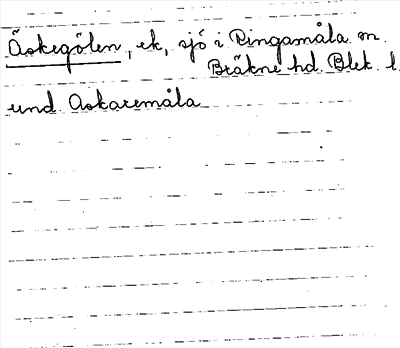 Äskegölen, ek, sjö i Ringamåla sn.
Bräkne hd. Blek. l.
und Askaremåla